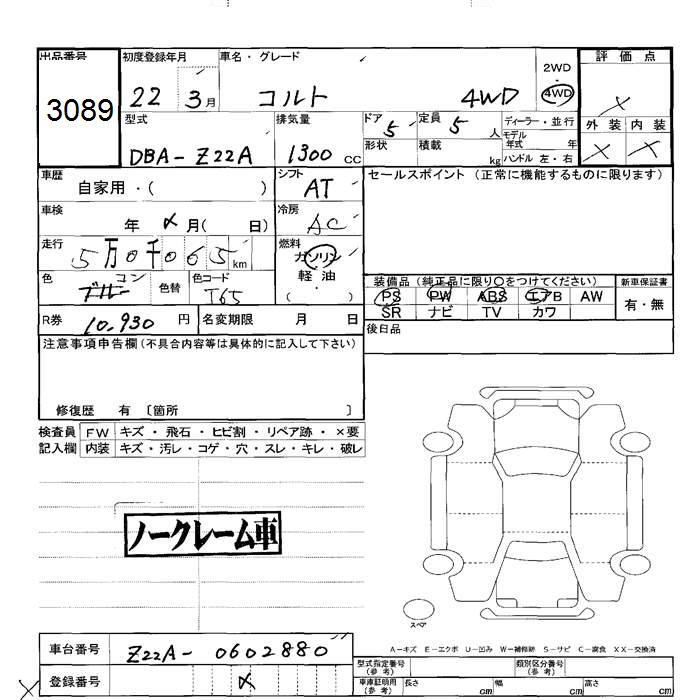 出品番号
3089
初度登録年月
22 3月
車名・グレード
コルト 4WD
2WD
・
4WD
評価点
×
外装 内装
× ×
型式
DBA-Z22A
排気量
1300 cc
ドア 5
定員 5 人
ディーラー・並行
モデル
年式 年
形状
積載 kg
ハンドル 左・右
車歴
自家用・( )
シフト
AT
セールスポイント (正常に機能するものに限ります)
車検
年 × 月( 日)
冷房
AC
走行
5万0千065 km
燃料
ガソリン
軽・油
( )
色
ブルー コン
色替
色コード
T65
装備品 (純正品に限り○をつけてください)
PS PW ABS エアB AW
SR ナビ TV カワ
新車保証書
有・無
R券 10,930 円
名変期限 月 日
後日品
注意事項申告欄(不具合内容等は具体的に記入して下さい)
修復歴 有 〔箇所 〕
検査員 FW キズ・飛石・ヒビ割・リペア跡・×要
記入欄 内装 キズ・汚レ・コゲ・穴・スレ・キレ・破レ
ノークレーム車
スペア
A-キズ E-エクボ U-凹み W-補修跡 S-サビ C-腐食 XX-交換済
車台番号 Z22A-0602880
登録番号 ×
型式指定番号
(参考)
類別区分番号
(参考)
車庫証明用
(参考)
長さ cm 幅 cm 高さ cm